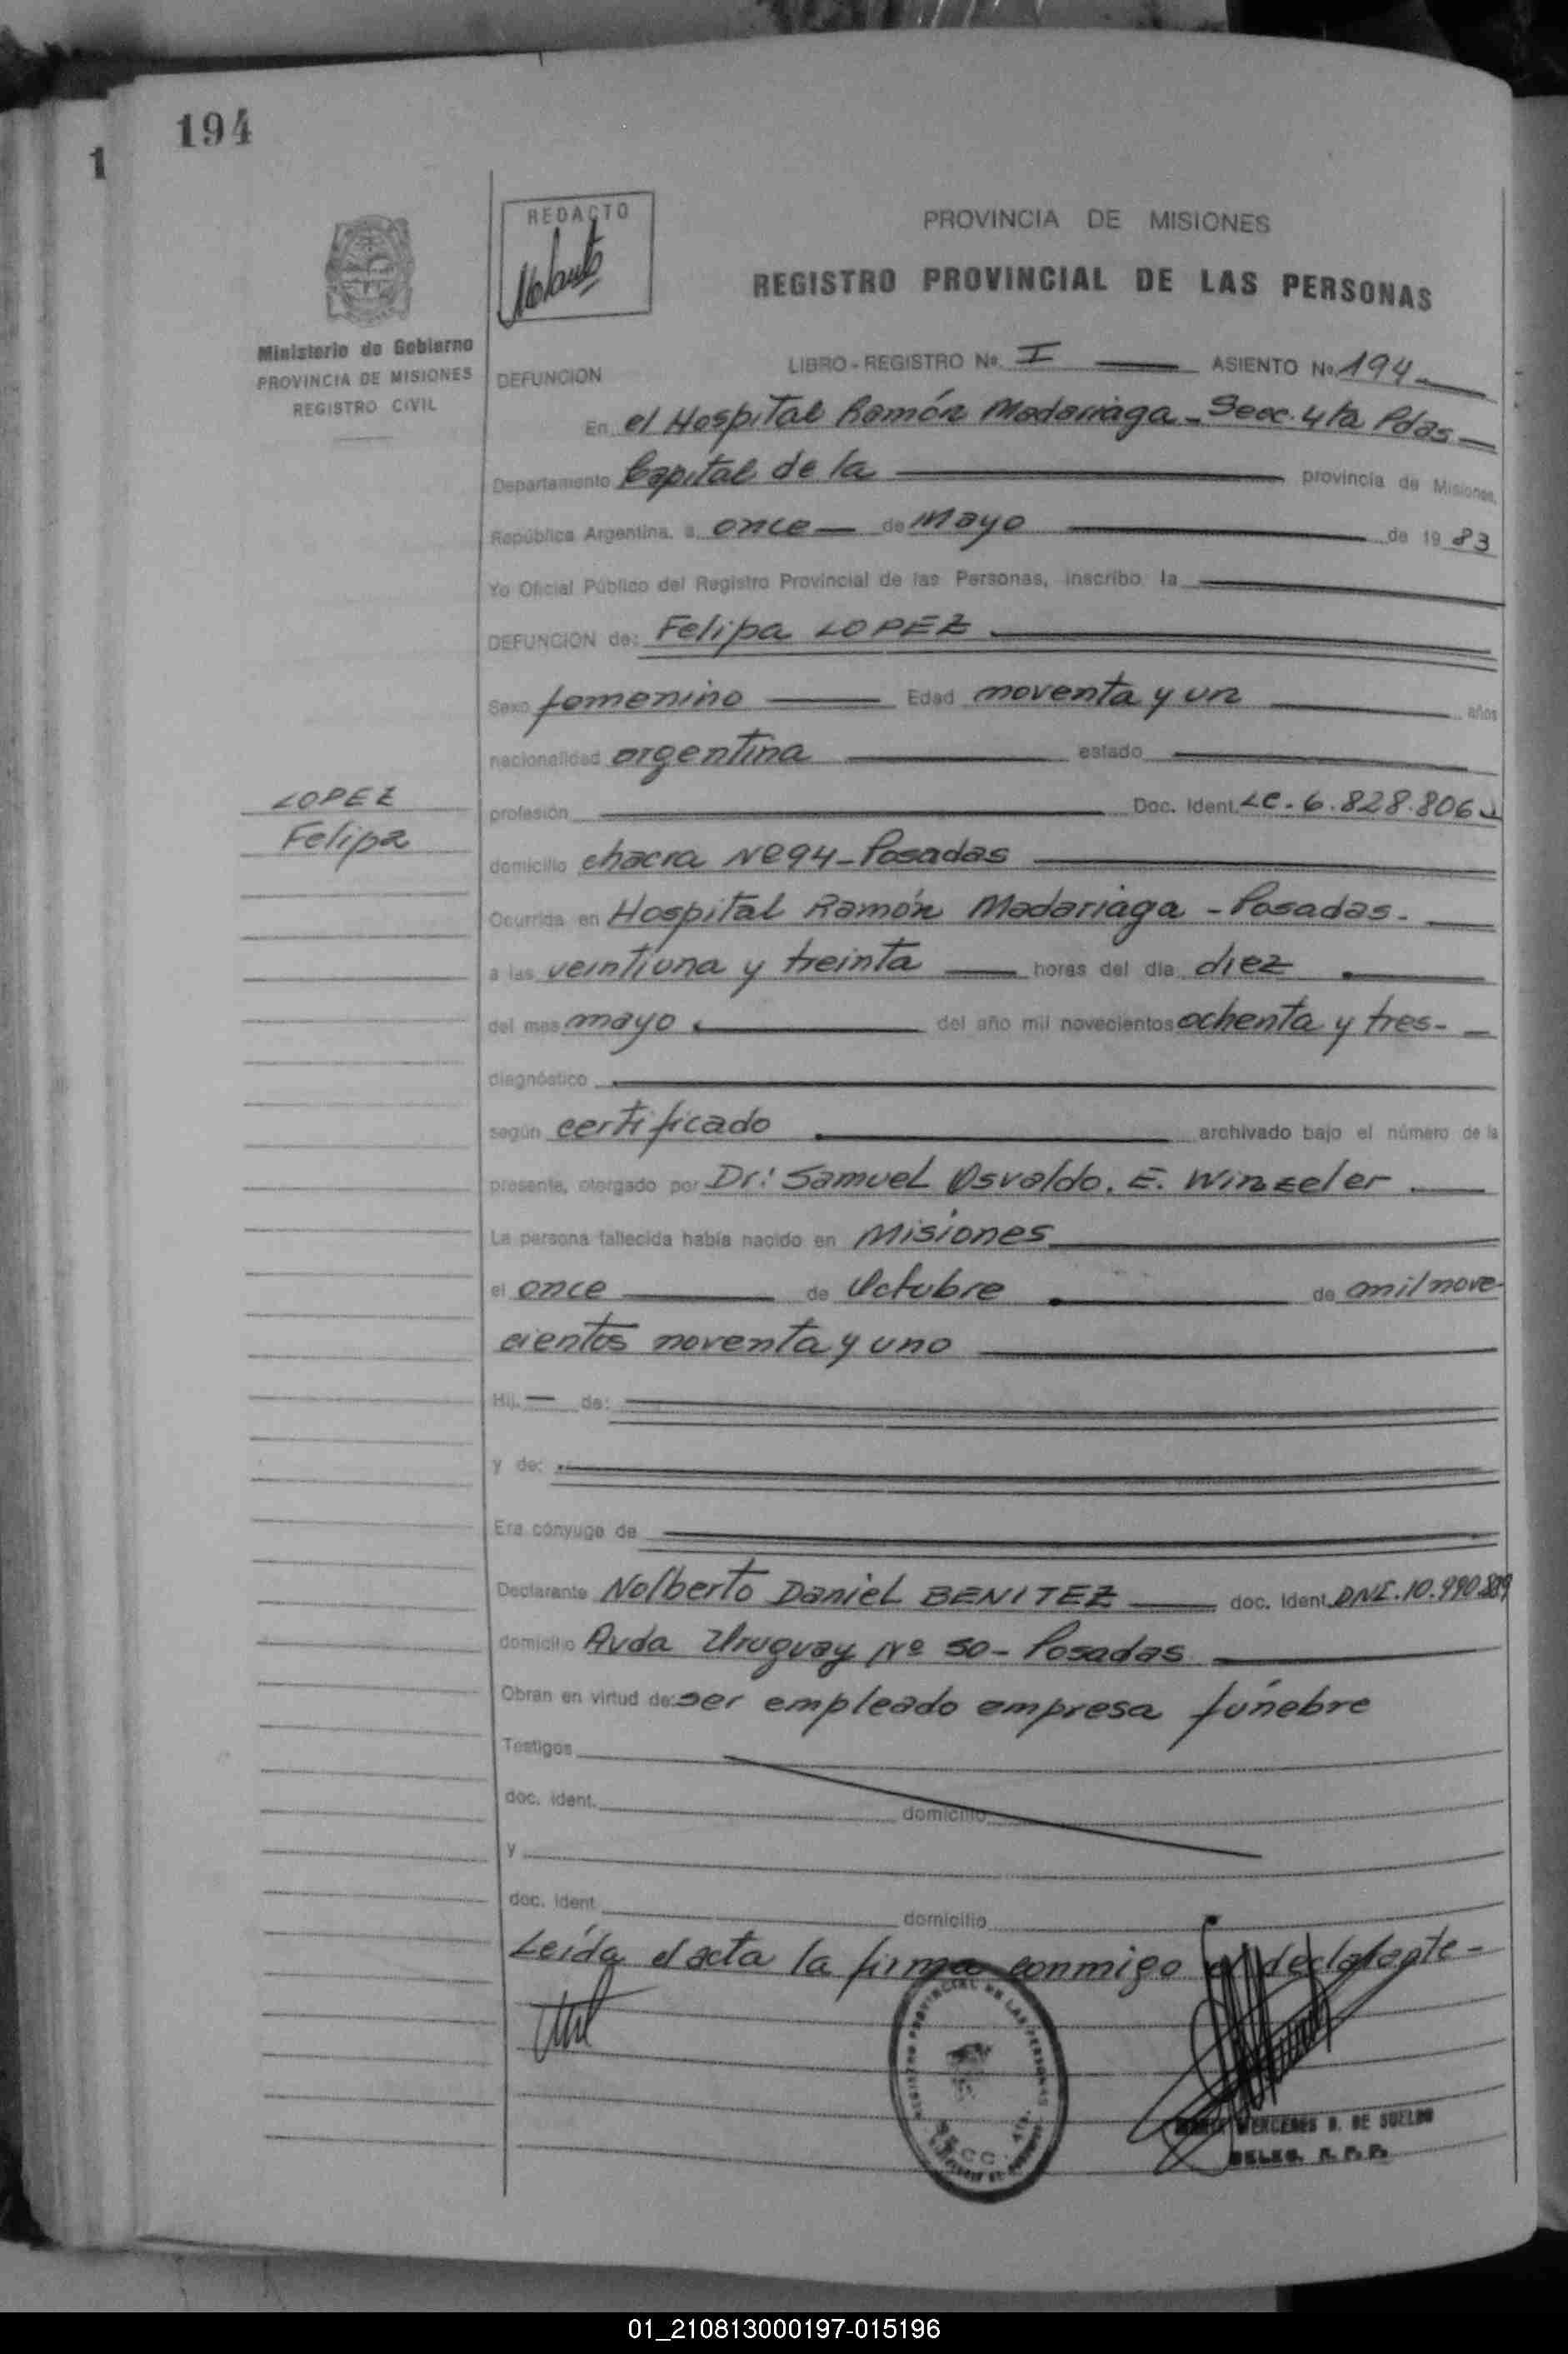 194
1
REDACTO
PROVINCIA DE MISIONES
REGISTRO PROVINCIAL DE LAS PERSONAS
Ministerio de Gobierno
PROVINCIA DE MISIONES
REGISTRO CIVIL
DEFUNCION LIBRO - REGISTRO No. I ASIENTO No. 194
En el Hospital Ramón Madariaga - Secc. 4ta Pdas
Departamento Capital de la provincia de Misiones,
República Argentina, a once de Mayo de 1983
Yo Oficial Público del Registro Provincial de las Personas, inscribo la
DEFUNCION de: Felipa LOPEZ
Sexo femenino Edad noventa y un años
nacionalidad argentina estado
LOPEZ
Felipa
profesión Doc. Ident. LC. 6.828.806
domicilio chacra Nº 94 - Posadas
Ocurrida en Hospital Ramón Madariaga - Posadas.
a las veintiuna y treinta horas del día diez
del mes mayo del año mil novecientos ochenta y tres-
diagnóstico
según certificado archivado bajo el número de la
presente, otorgado por Dr: Samuel Osvaldo. E. Winzeler
La persona fallecida había nacido en Misiones
el once de Octubre de mil nove-
cientos noventa y uno
Hij. de:
y de:
Era cónyuge de
Declarante Nolberto Daniel BENITEZ doc. Ident. DNI. 10.990.889
domicilio Avda Uruguay Nº 50 - Posadas
Obran en virtud de: ser empleado empresa fúnebre
Testigos
doc. ident. domicilio
y
doc. ident. domicilio
Leída el acta la firma conmigo el declarante -
REGISTRO PROVINCIAL DE LAS PERSONAS
SECC. 4ta.
MERCEDES DE SUELDO
DELEG. R. P. P.
01_210813000197-015196